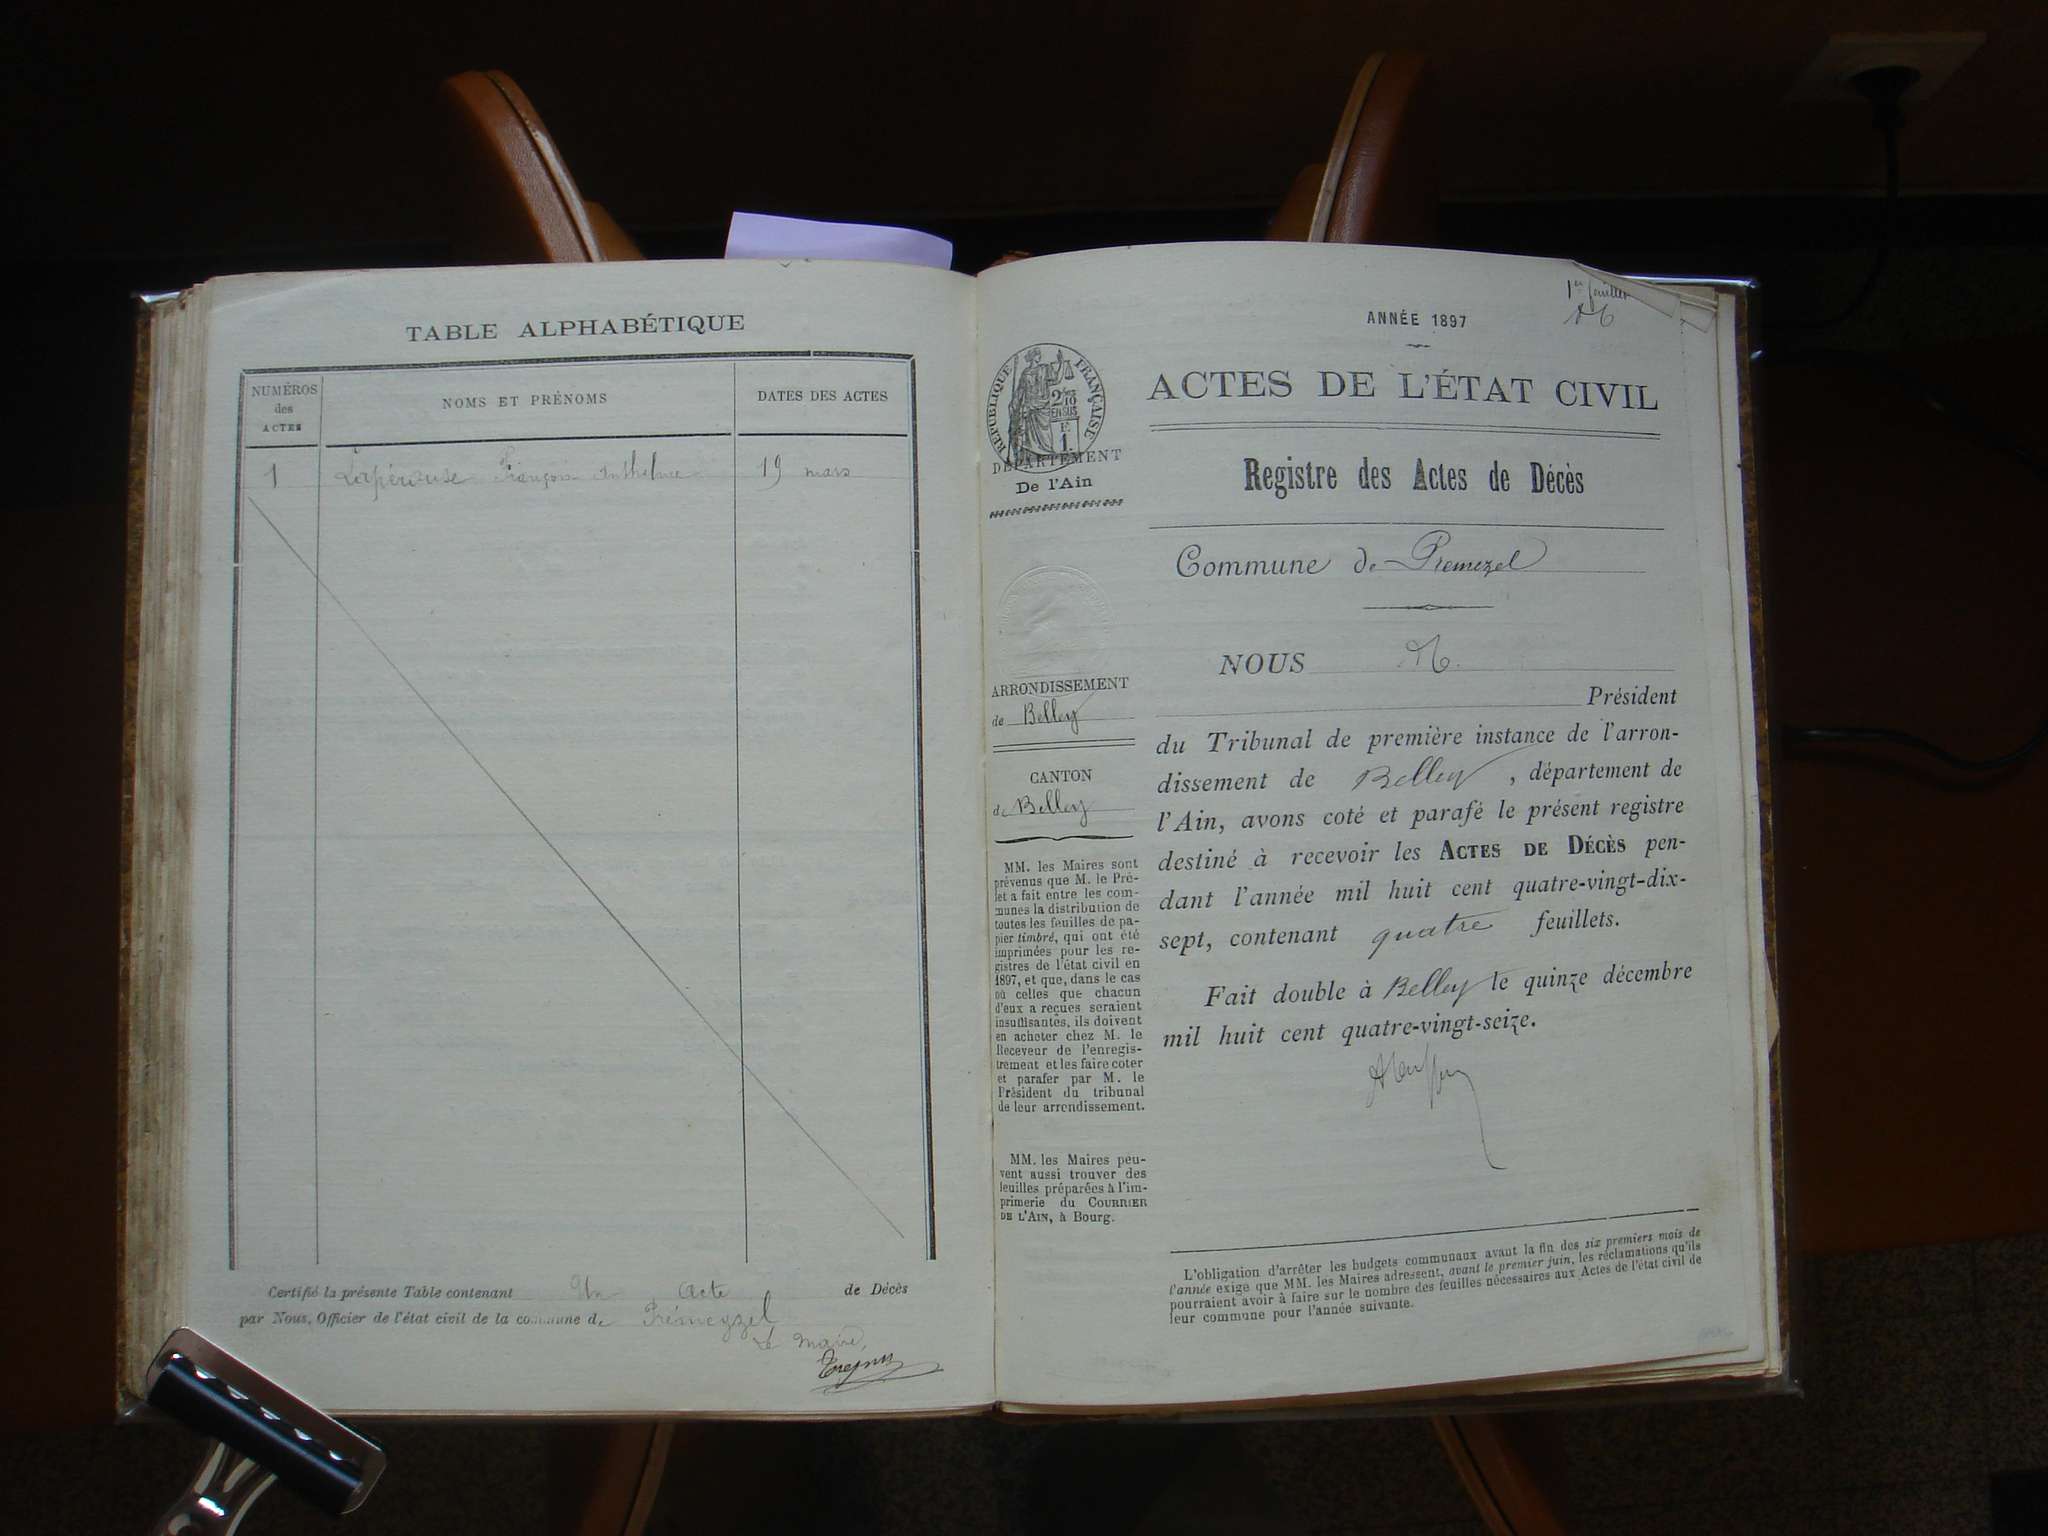 TABLE ALPHABÉTIQUE
NUMÉROS
des
ACTES
NOMS ET PRÉNOMS
DATES DES ACTES
1 Lapérouse François Anthelme 19 mars
Certifié la présente Table contenant Un Acte de Décès
par Nous, Officier de l'état civil de la commune de Prémeyzel
Le Maire,
1er feuillet
ANNÉE 1897
RÉPUBLIQUE FRANÇAISE
DÉPARTEMENT
De l'Ain
ARRONDISSEMENT
de Belley
CANTON
de Belley
MM. les Maires sont
prévenus que M. le Pré-
fet a fait entre les com-
munes la distribution de
toutes les feuilles de pa-
pier timbré, qui ont été
imprimées pour les re-
gistres de l'état civil en
1897, et que, dans le cas
où celles que chacun
d'eux a reçues seraient
insuffisantes, ils doivent
en acheter chez M. le
Receveur de l'enregis-
trement et les faire coter
et parafer par M. le
Président du tribunal
de leur arrondissement.
MM. les Maires peu-
vent aussi trouver des
feuilles préparées à l'im-
primerie du COURRIER
DE L'AIN, à Bourg.
ACTES DE L'ÉTAT CIVIL
Registre des Actes de Décès
Commune de Premezel
NOUS
Président
du Tribunal de première instance de l'arron-
dissement de Belley, département de
l'Ain, avons coté et parafé le présent registre
destiné à recevoir les ACTES DE DÉCÈS pen-
dant l'année mil huit cent quatre-vingt-dix-
sept, contenant quatre feuillets.
Fait double à Belley le quinze décembre
mil huit cent quatre-vingt-seize.
L'obligation d'arrêter les budgets communaux avant la fin des six premiers mois de
l'année exige que MM. les Maires adressent, avant le premier juin, les réclamations qu'ils
pourraient avoir à faire sur le nombre des feuilles nécessaires aux Actes de l'état civil de
leur commune pour l'année suivante.